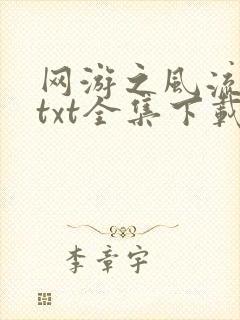 网游之风流
txt全集下载
李章宇